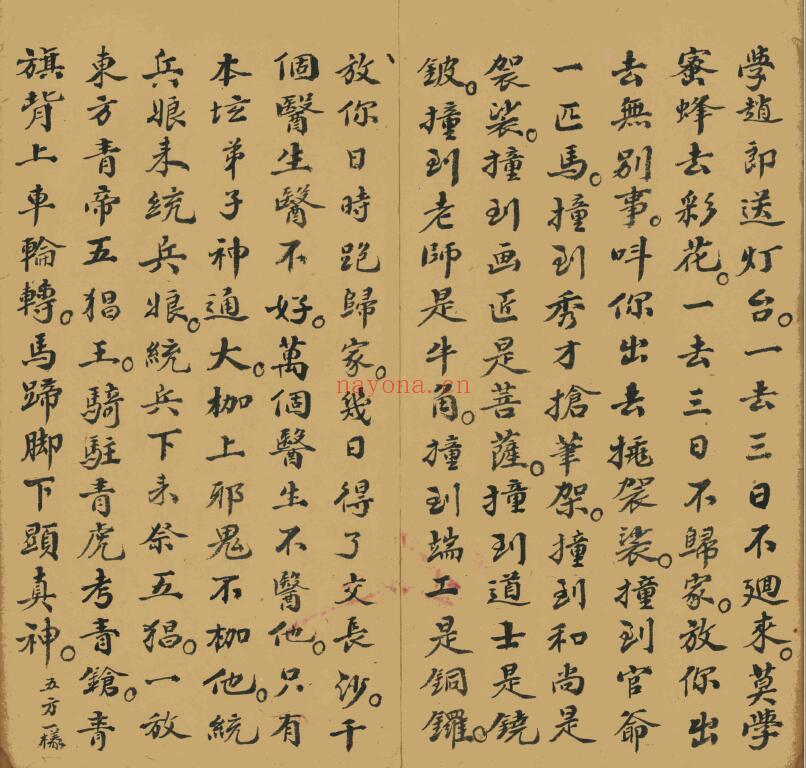 學趙郎送灯台。一去三日不廻來。莫學
蜜蜂去彩花。一去三日不歸家。放你出
去無别事。呌你出去攙袈裟。撞到官爺
一匹馬。撞到秀才搶筆架。撞到和尚是
袈裟。撞到画匠是菩薩。撞到道士是鐃
鈸。撞到老師是牛角。撞到端工是銅鑼。
放你日時跑歸家。幾日得了交長沙。千
個醫生醫不好。萬個醫生不醫他。只有
本坛弟子神通大。枷上邪鬼不枷他。統
兵娘來統兵娘。統兵下來祭五猖。一放
東方青帝五猖王。騎駐青虎考青鎗。青
旗背上車輪轉。馬蹄脚下顕真神。五方一樣
nayona.cn